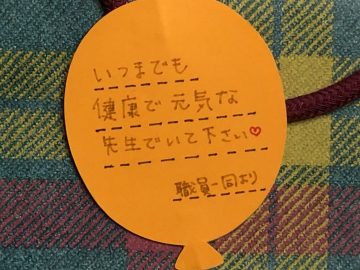 いつまでも
健康で元気な
先生でいて下さい♡
職員一同より